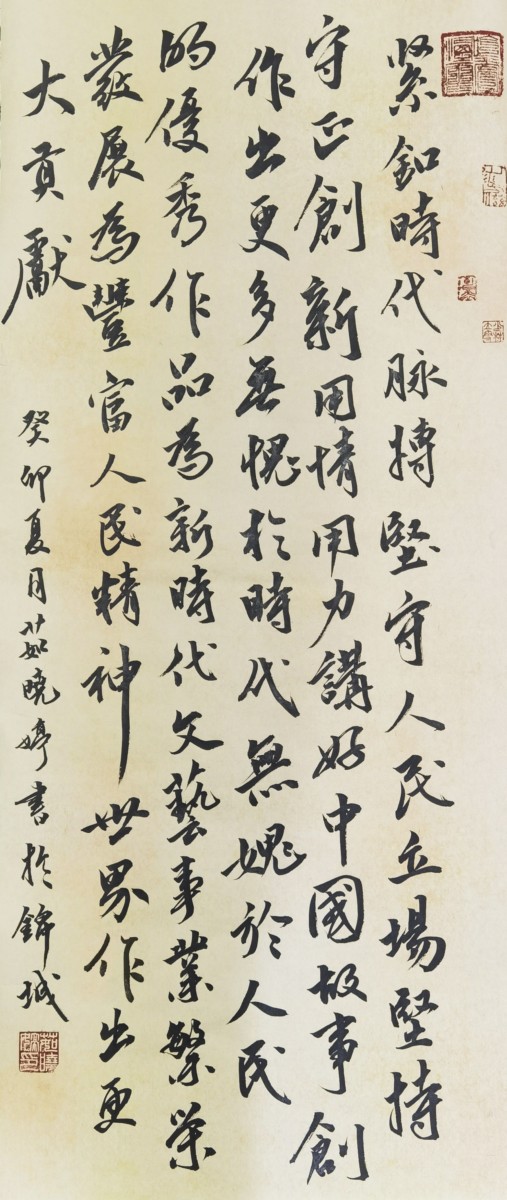 緊釦時代脉搏堅守人民立場堅持
守正創新用情用力講好中國故事創
作出更多無愧於時代無媿於人民
的優秀作品為新時代文藝事業繁榮
發展為豐富人民精神世界作出更
大貢獻
癸卯夏月茹曉婷書於錦城